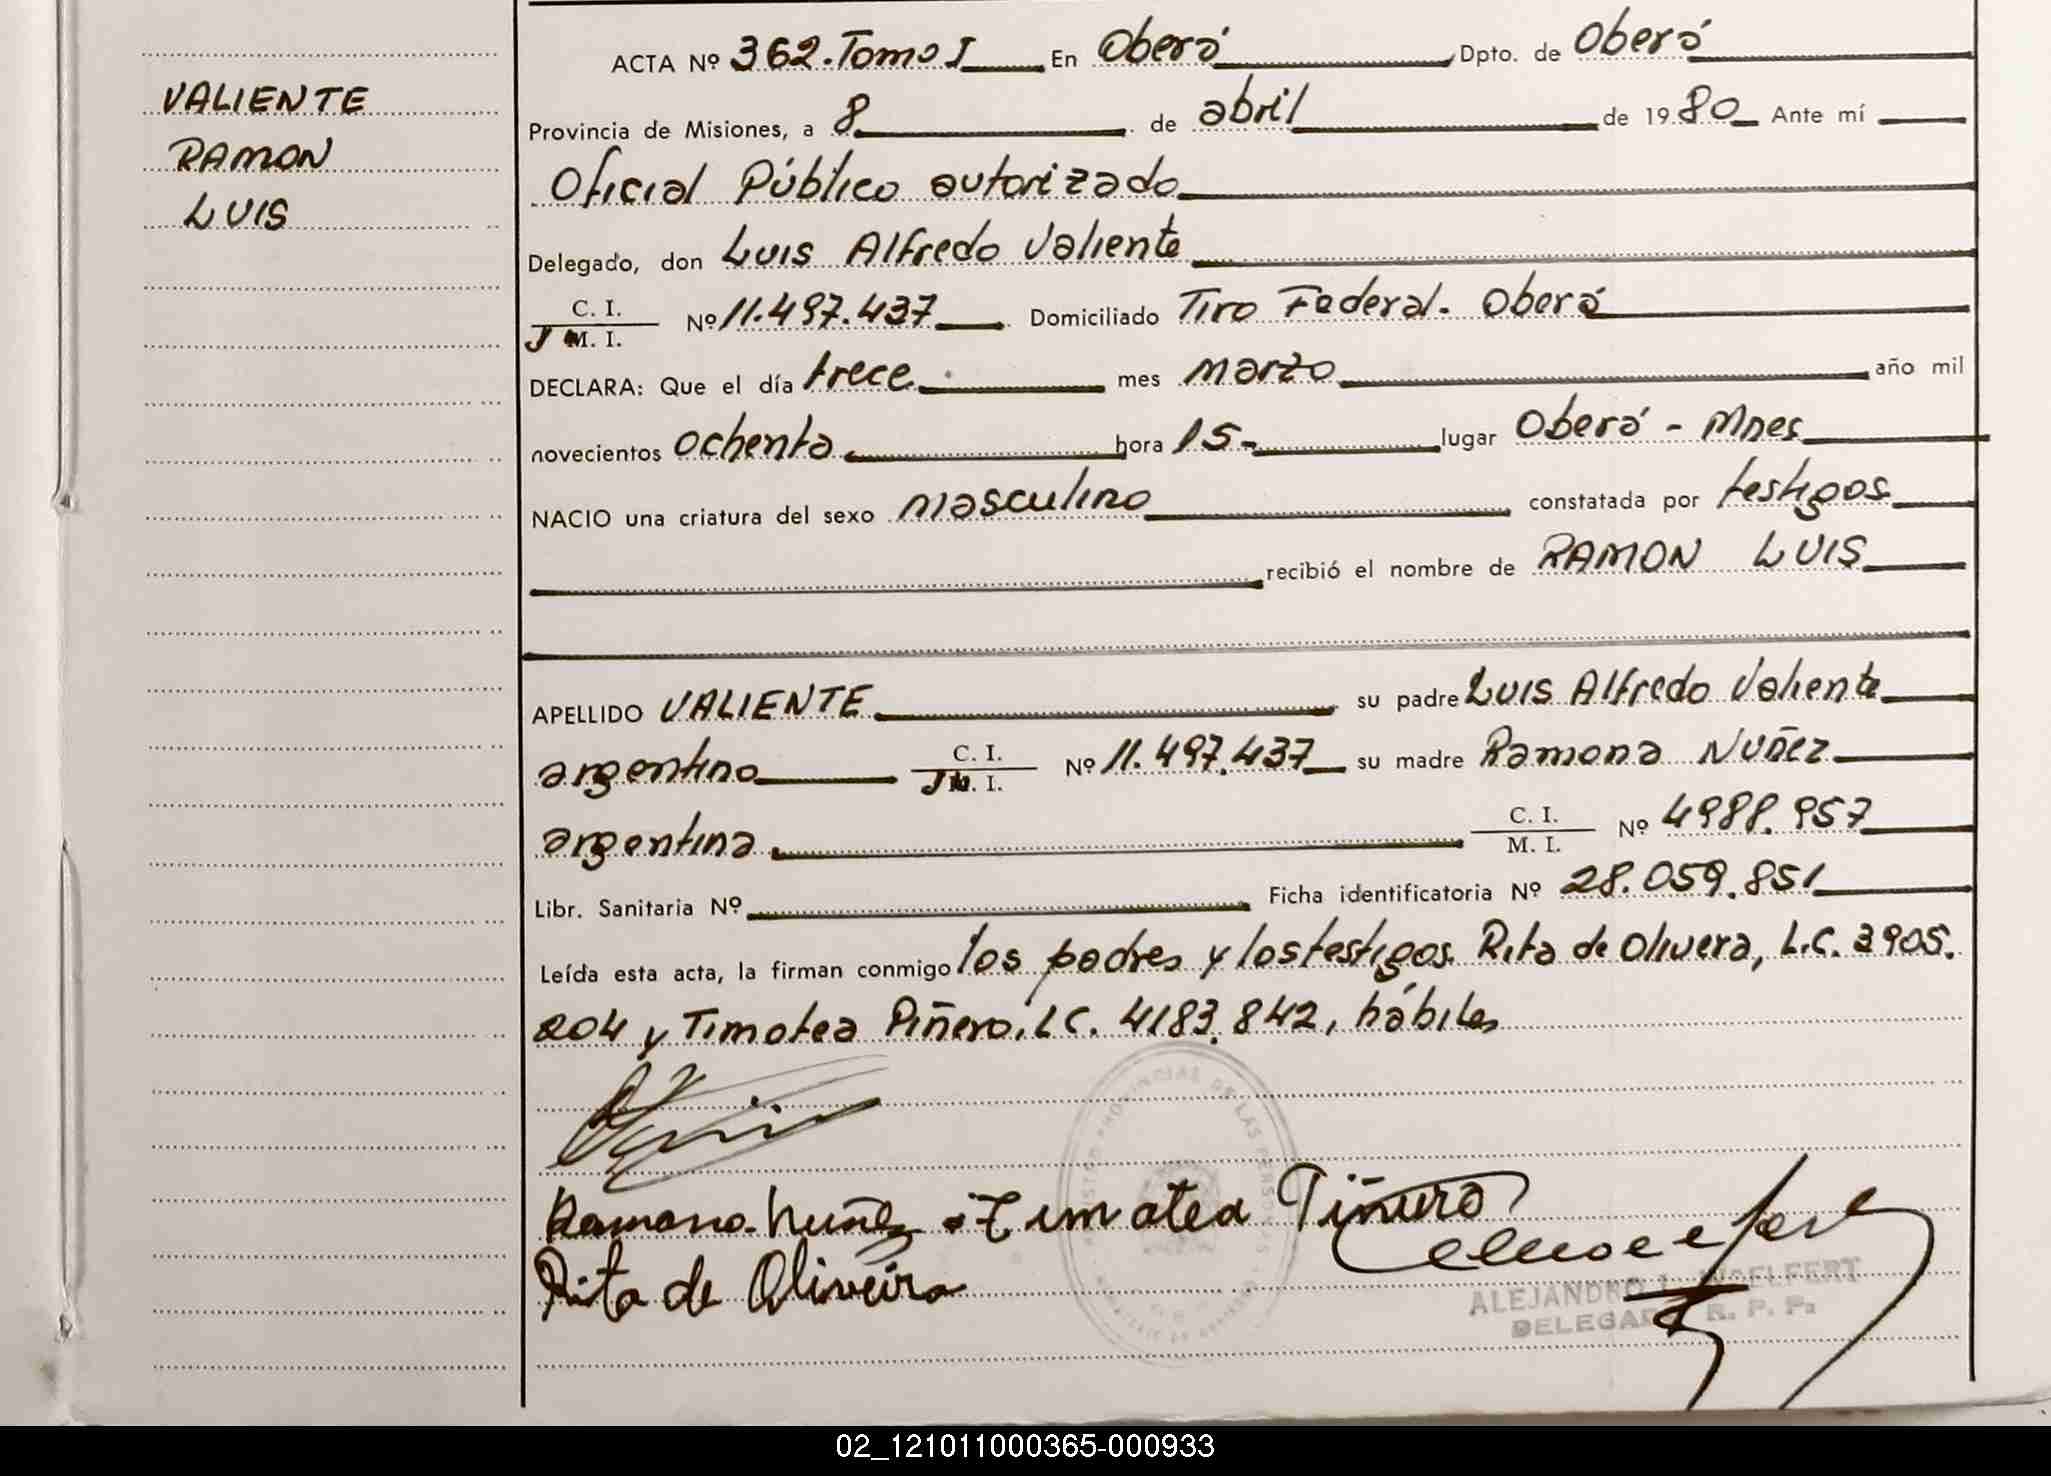 VALIENTE
RAMON
LUIS
ACTA Nº 362. Tomo I En Oberá Dpto. de Oberá
Provincia de Misiones, a 8 de abril de 1980 Ante mí
Oficial Público autorizado
Delegado, don Luis Alfredo Valiente
C. I.
M. I. Nº 11.497.437 Domiciliado Tiro Federal. Oberá
DECLARA: Que el día trece mes marzo año mil
novecientos ochenta hora 15- lugar Oberá - Mnes
NACIO una criatura del sexo masculino constatada por testigos
recibió el nombre de RAMON LUIS
APELLIDO VALIENTE su padre Luis Alfredo Valiente
argentino C. I. M. I. Nº 11.497.437 su madre Ramona Nuñez
argentina C. I. M. I. Nº 4988.957
Libr. Sanitaria Nº Ficha identificatoria Nº 28.059.851
Leída esta acta, la firman conmigo los padres y los testigos Rita de Olivera, L.C. 3905.
204 y Timotea Piñero, L.C. 4183.842, hábiles
Ramona Nuñez Timotea Piñero
Rita de Oliveira
ALEJANDRO
DELEGADO R. P. P.
02_121011000365-000933